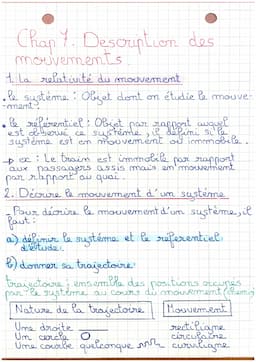 Chap 7. Description des
mouvements.
1. La relativité du mouvement
• le système : Objet dont on étudie le mouve-
-ment.
• le référentiel : Objet par rapport auquel
est observé ce système, il défini si le
système est en mouvement ou immobile.
→ ex : Le train est immobile par rapport
aux passagers assis mais en mouvement
par rapport au quai.
2. Décrire le mouvement d'un système
Pour décrire le mouvement d'un système, il
faut :
a) définir le système et le referentiel
d'étude.
b) donner sa trajectoire.
trajectoire : ensemble des positions occupées
par le système au cours du mouvement
Nature de la trajectoire Mouvement
Une droite rectiligne
Un cercle circulaire
Une courbe quelconque curviligne